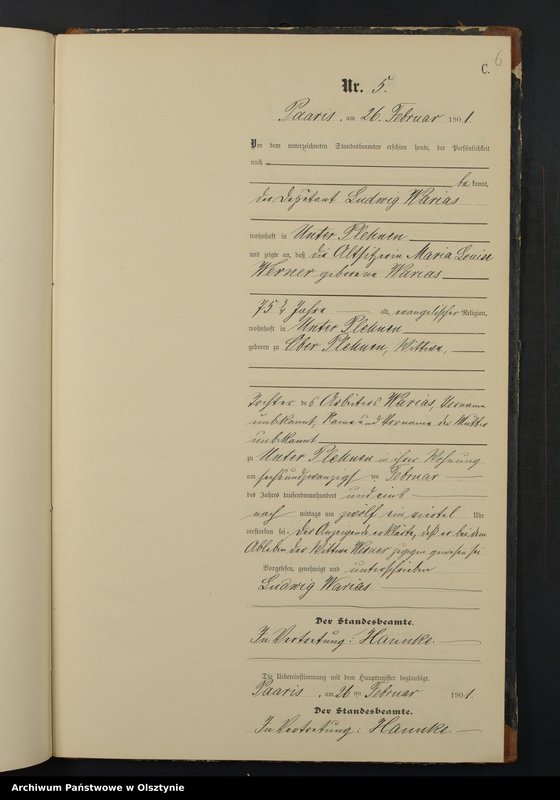 6
C.
Nr. 5.
Paaris, am 26. Februar 1901.
Vor dem unterzeichneten Standesbeamten erschien heute, der Persönlichkeit
nach
be kannt,
der Deputant Ludwig Warias
wohnhaft in Unter Plehnen
und zeigte an, daß die Altsitzerin Maria Louise
Werner geborene Warias
75 3/4 Jahre alt, evangelischer Religion,
wohnhaft in Unter Plehnen
geboren zu Ober Plehnen, Wittwe,
Tochter des Arbeiters Warias, Vorname
unbekannt, Name und Vorname der Mutter
unbekannt
zu Unter Plehnen in ihrer Wohnung
am sechsundzwanzigst ten Februar
des Jahres tausendneunhundert und eins
nach mittags um zwölf ein viertel Uhr
verstorben sei. Der Anzeigende erklärte, daß er bei dem
Ableben der Wittwe Werner zugegen gewesen sei
Vorgelesen, genehmigt und unterschrieben
Ludwig Warias.
Der Standesbeamte.
In Vertretung: Hannke.
Die Uebereinstimmung mit dem Hauptregister beglaubigt.
Paaris, am 26 ten Februar 1901.
Der Standesbeamte.
In Vertretung: Hannke.
Archiwum Państwowe w Olsztynie